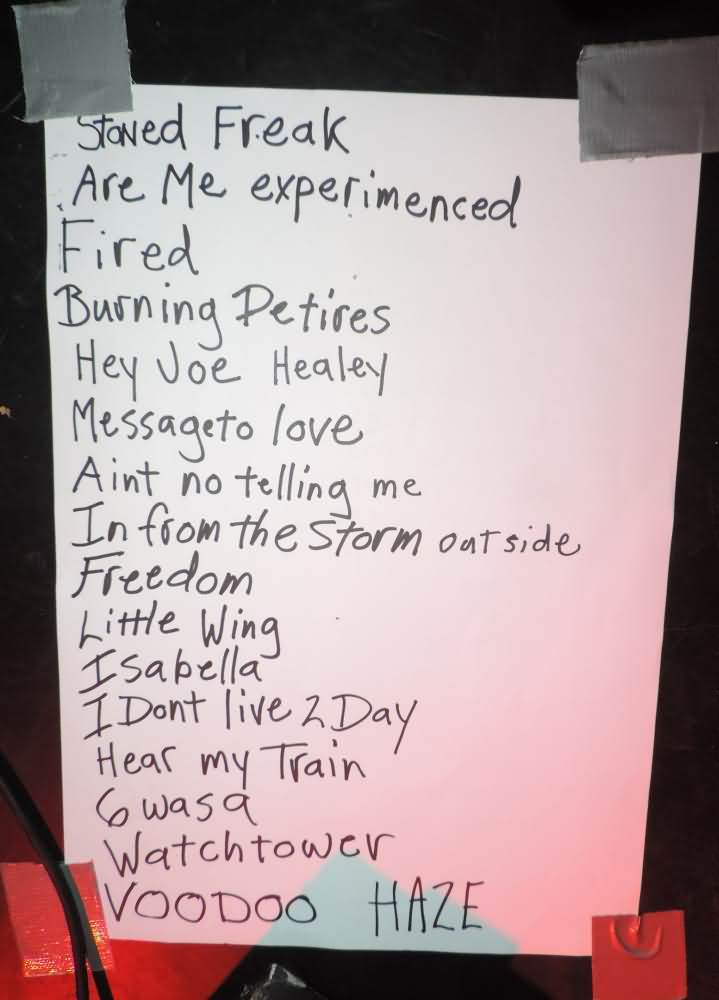 Stoned Freak
Are Me experimenced
Fired
Burning Detires
Hey Joe Healey
Message to love
Aint no telling me
In from the Storm outside
Freedom
Little Wing
Isabella
I Dont live 2 Day
Hear my Train
6 was a
Watchtower
VOODOO HAZE